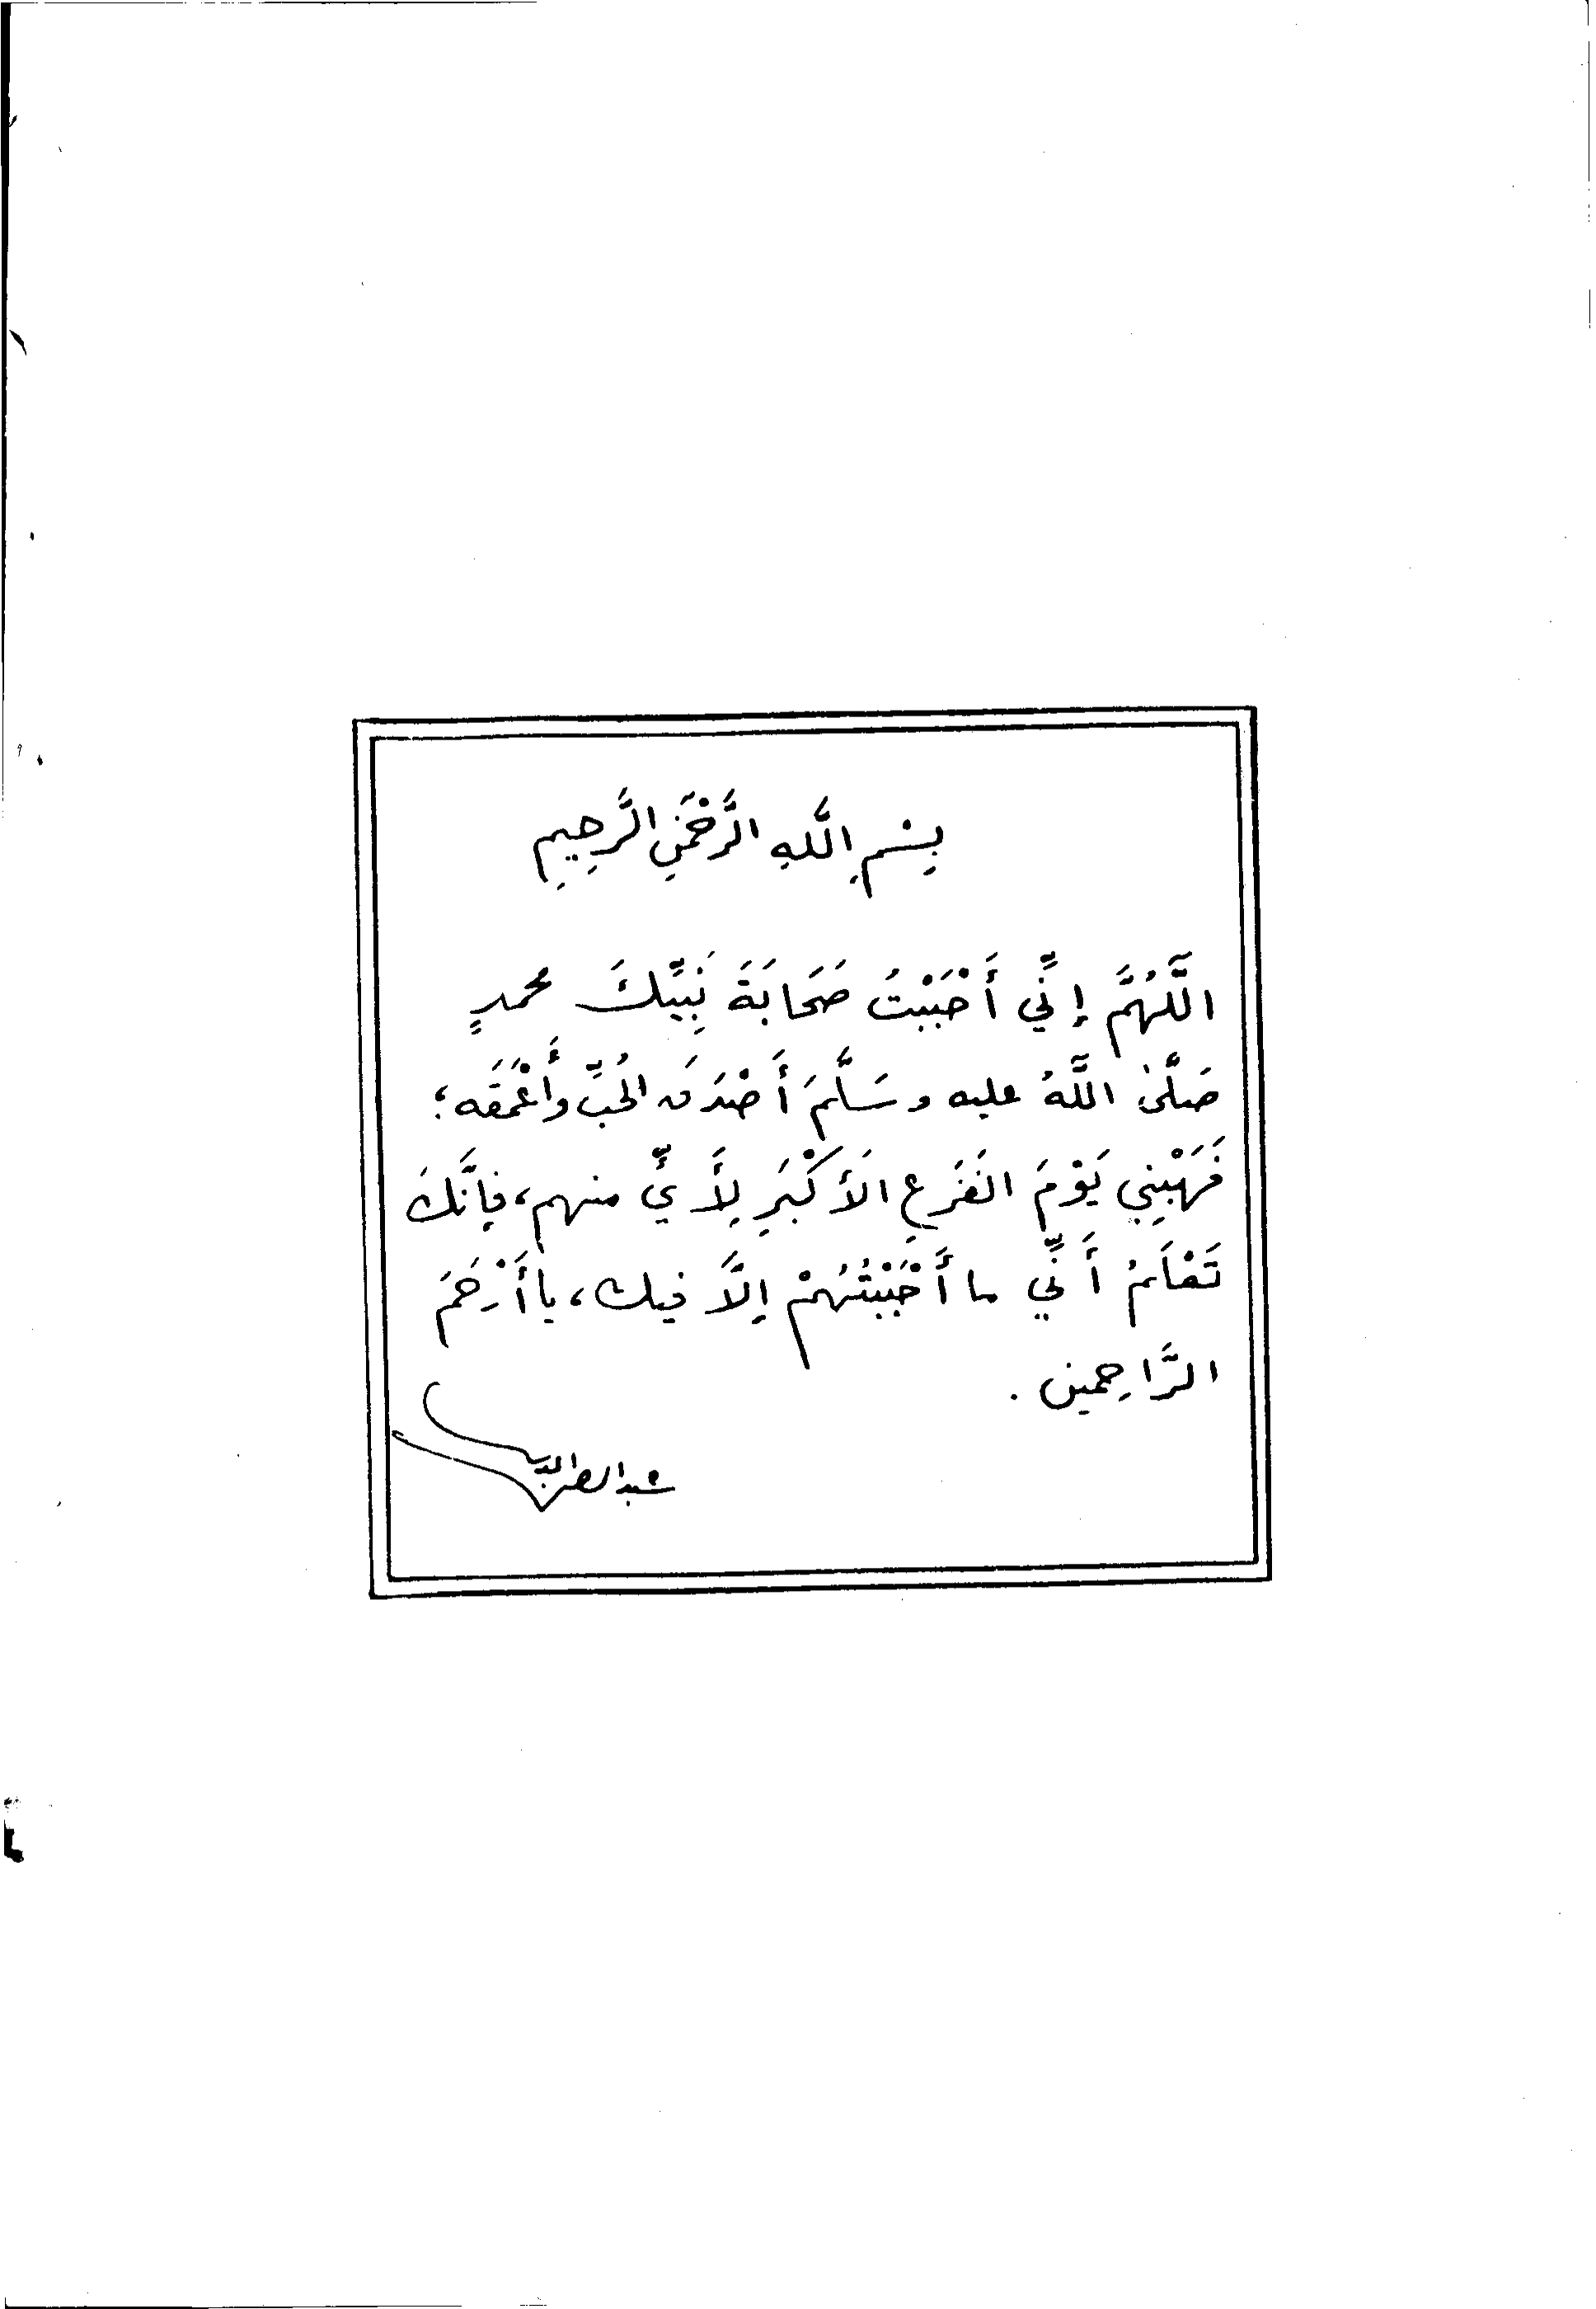 بِسْمِ اللَّهِ الرَّحْمَنِ الرَّحِيمِ
اللَّهُمَّ إِنِّي أَحْبَبْتُ صَحَابَةَ نَبِيِّكَ محمدٍ
صَلَّى اللَّهُ عليه وسَلَّمَ أَصْدَقَ الحُبِّ وأَعْمَقَه؛
فَهَبْنِي يَوْمَ الفَزَعِ الأَكْبَرِ لِأَيٍّ منهم، فإنَّكَ
تَعْلَمُ أَنِّي ما أَحْبَبْتُهُمْ إلَّا فيك، يا أَرْحَمَ
الرَّاحِمين.